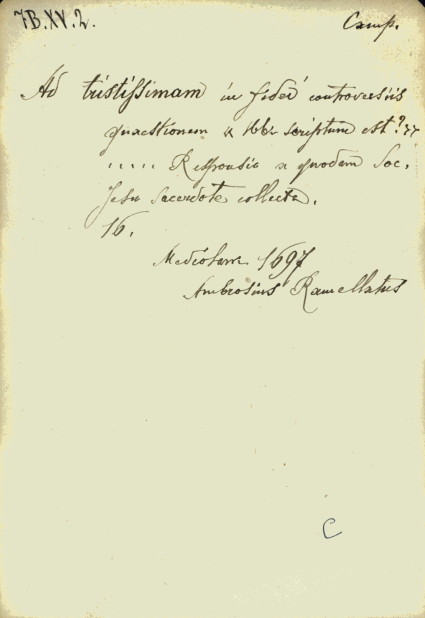 7B.XV.2.
Camp.
Ad tristissimam in fidei controversiis
quaestionem ubi scriptum est? ??
..... Responsio a quodam Soc.
Jesu sacerdote collecta.
16.
Mediolani 1697
Ambrosius Ramellatus
C